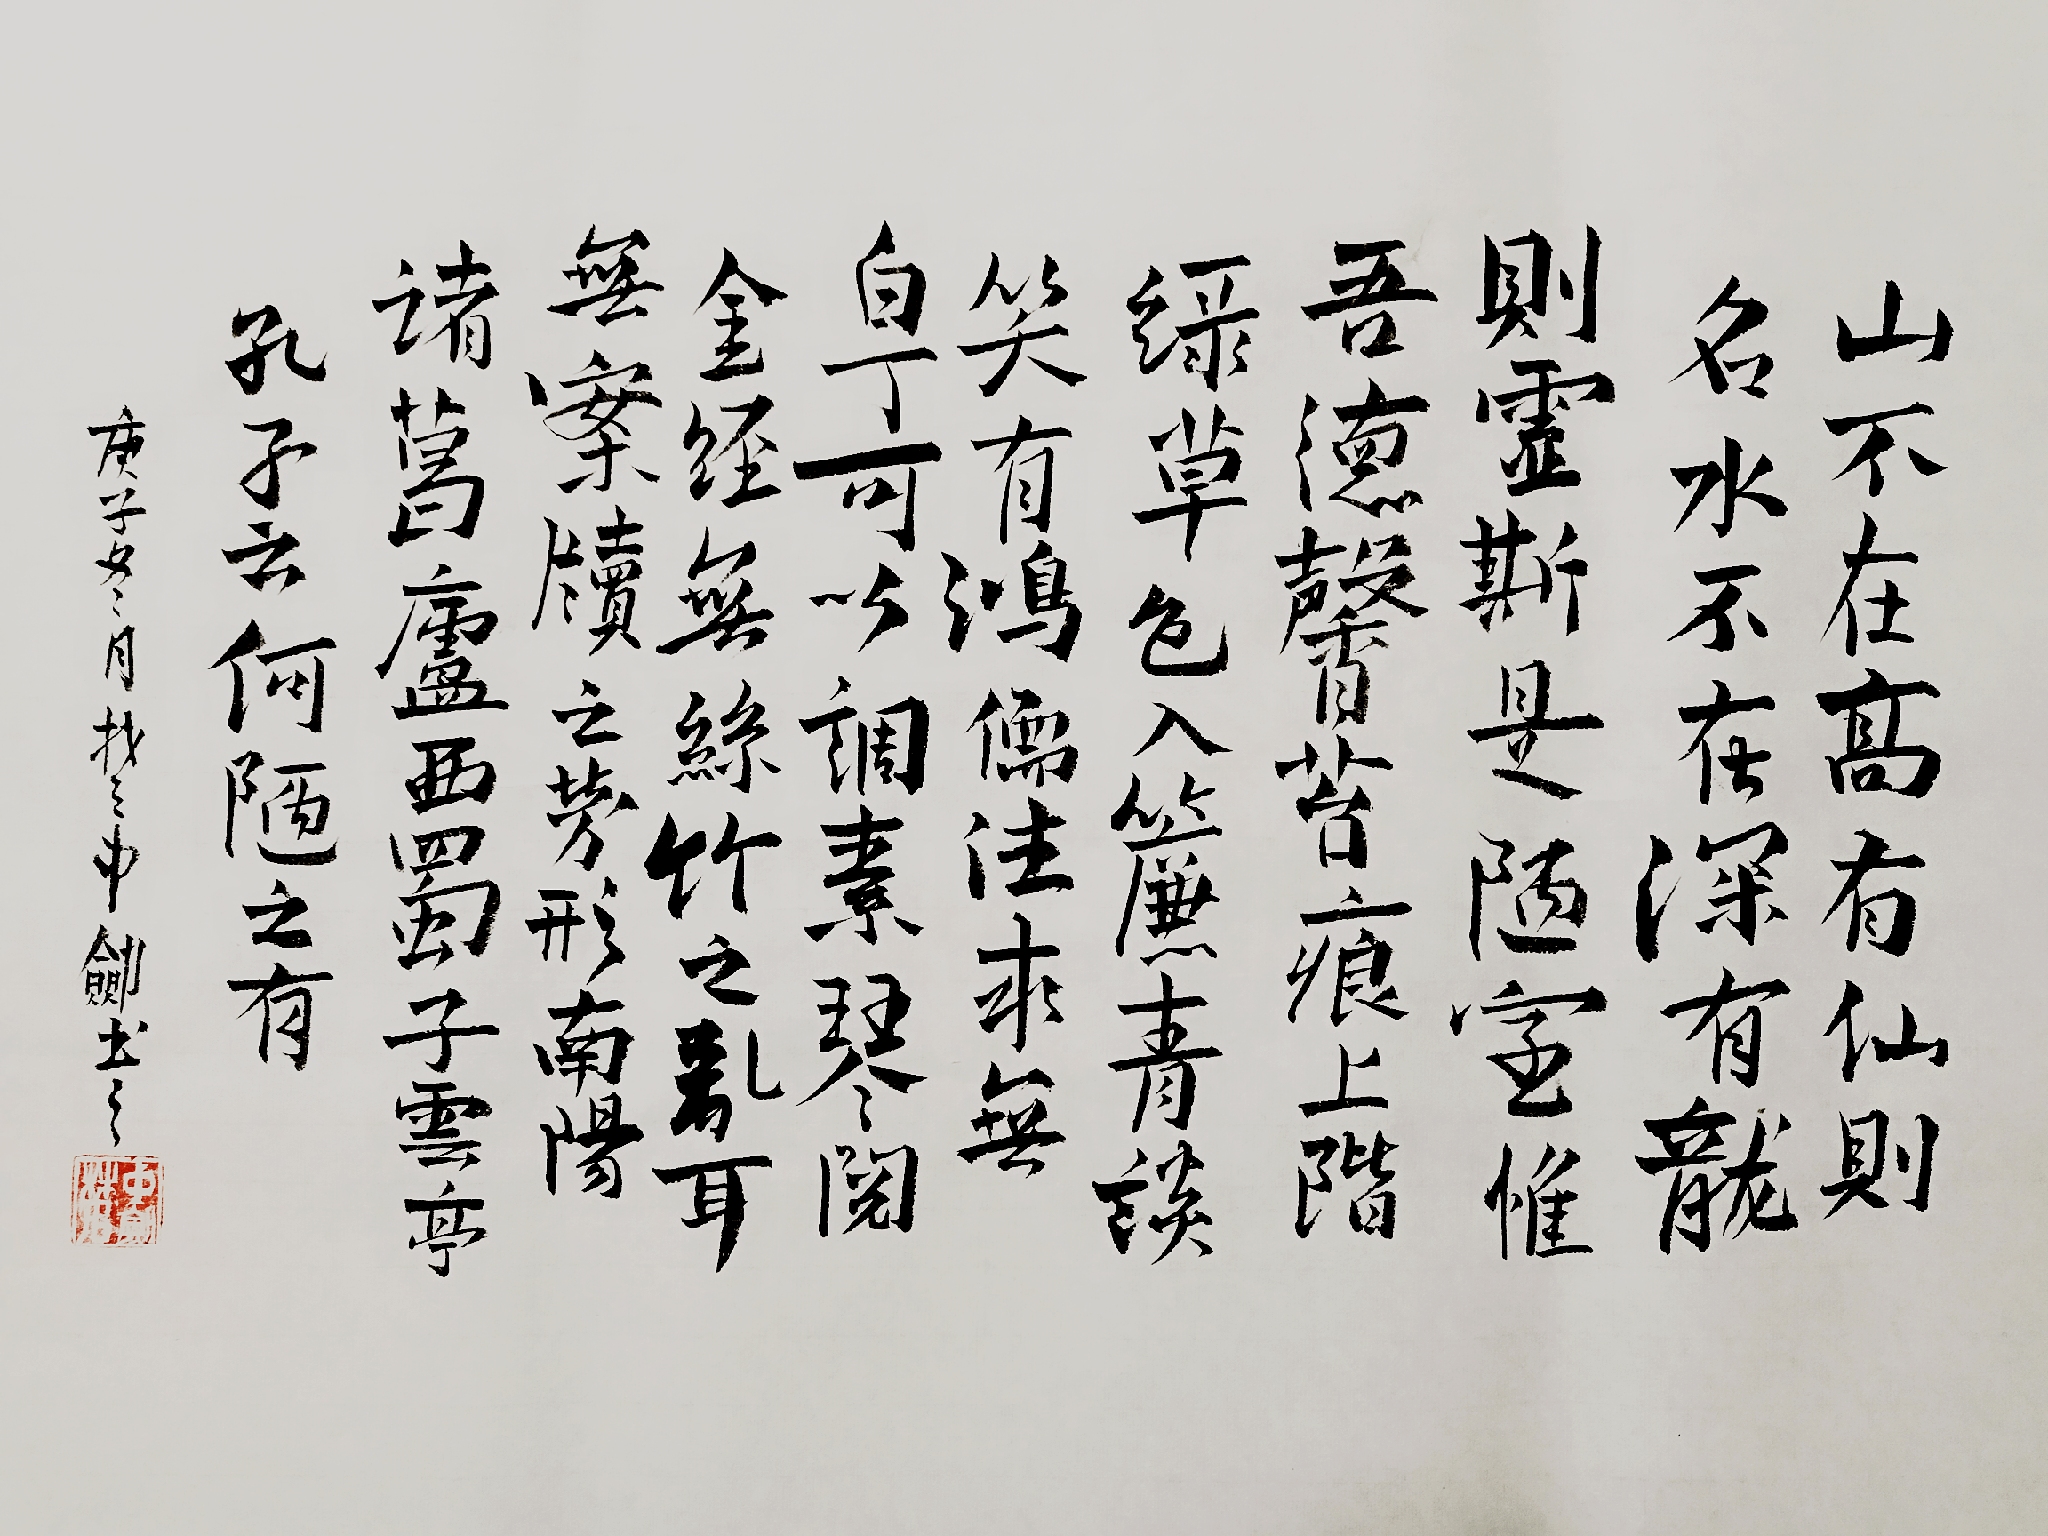 山不在髙有仙則
名水不在深有龍
則靈斯是陋室惟
吾德馨苔痕上階
緑草色入簾青談
笑有鴻儒往来無
白丁可以調素琴閱
金經無絲竹之亂耳
無案牘之勞形南陽
諸葛廬西蜀子雲亭
孔子云何陋之有
庚子冬月申劍书之